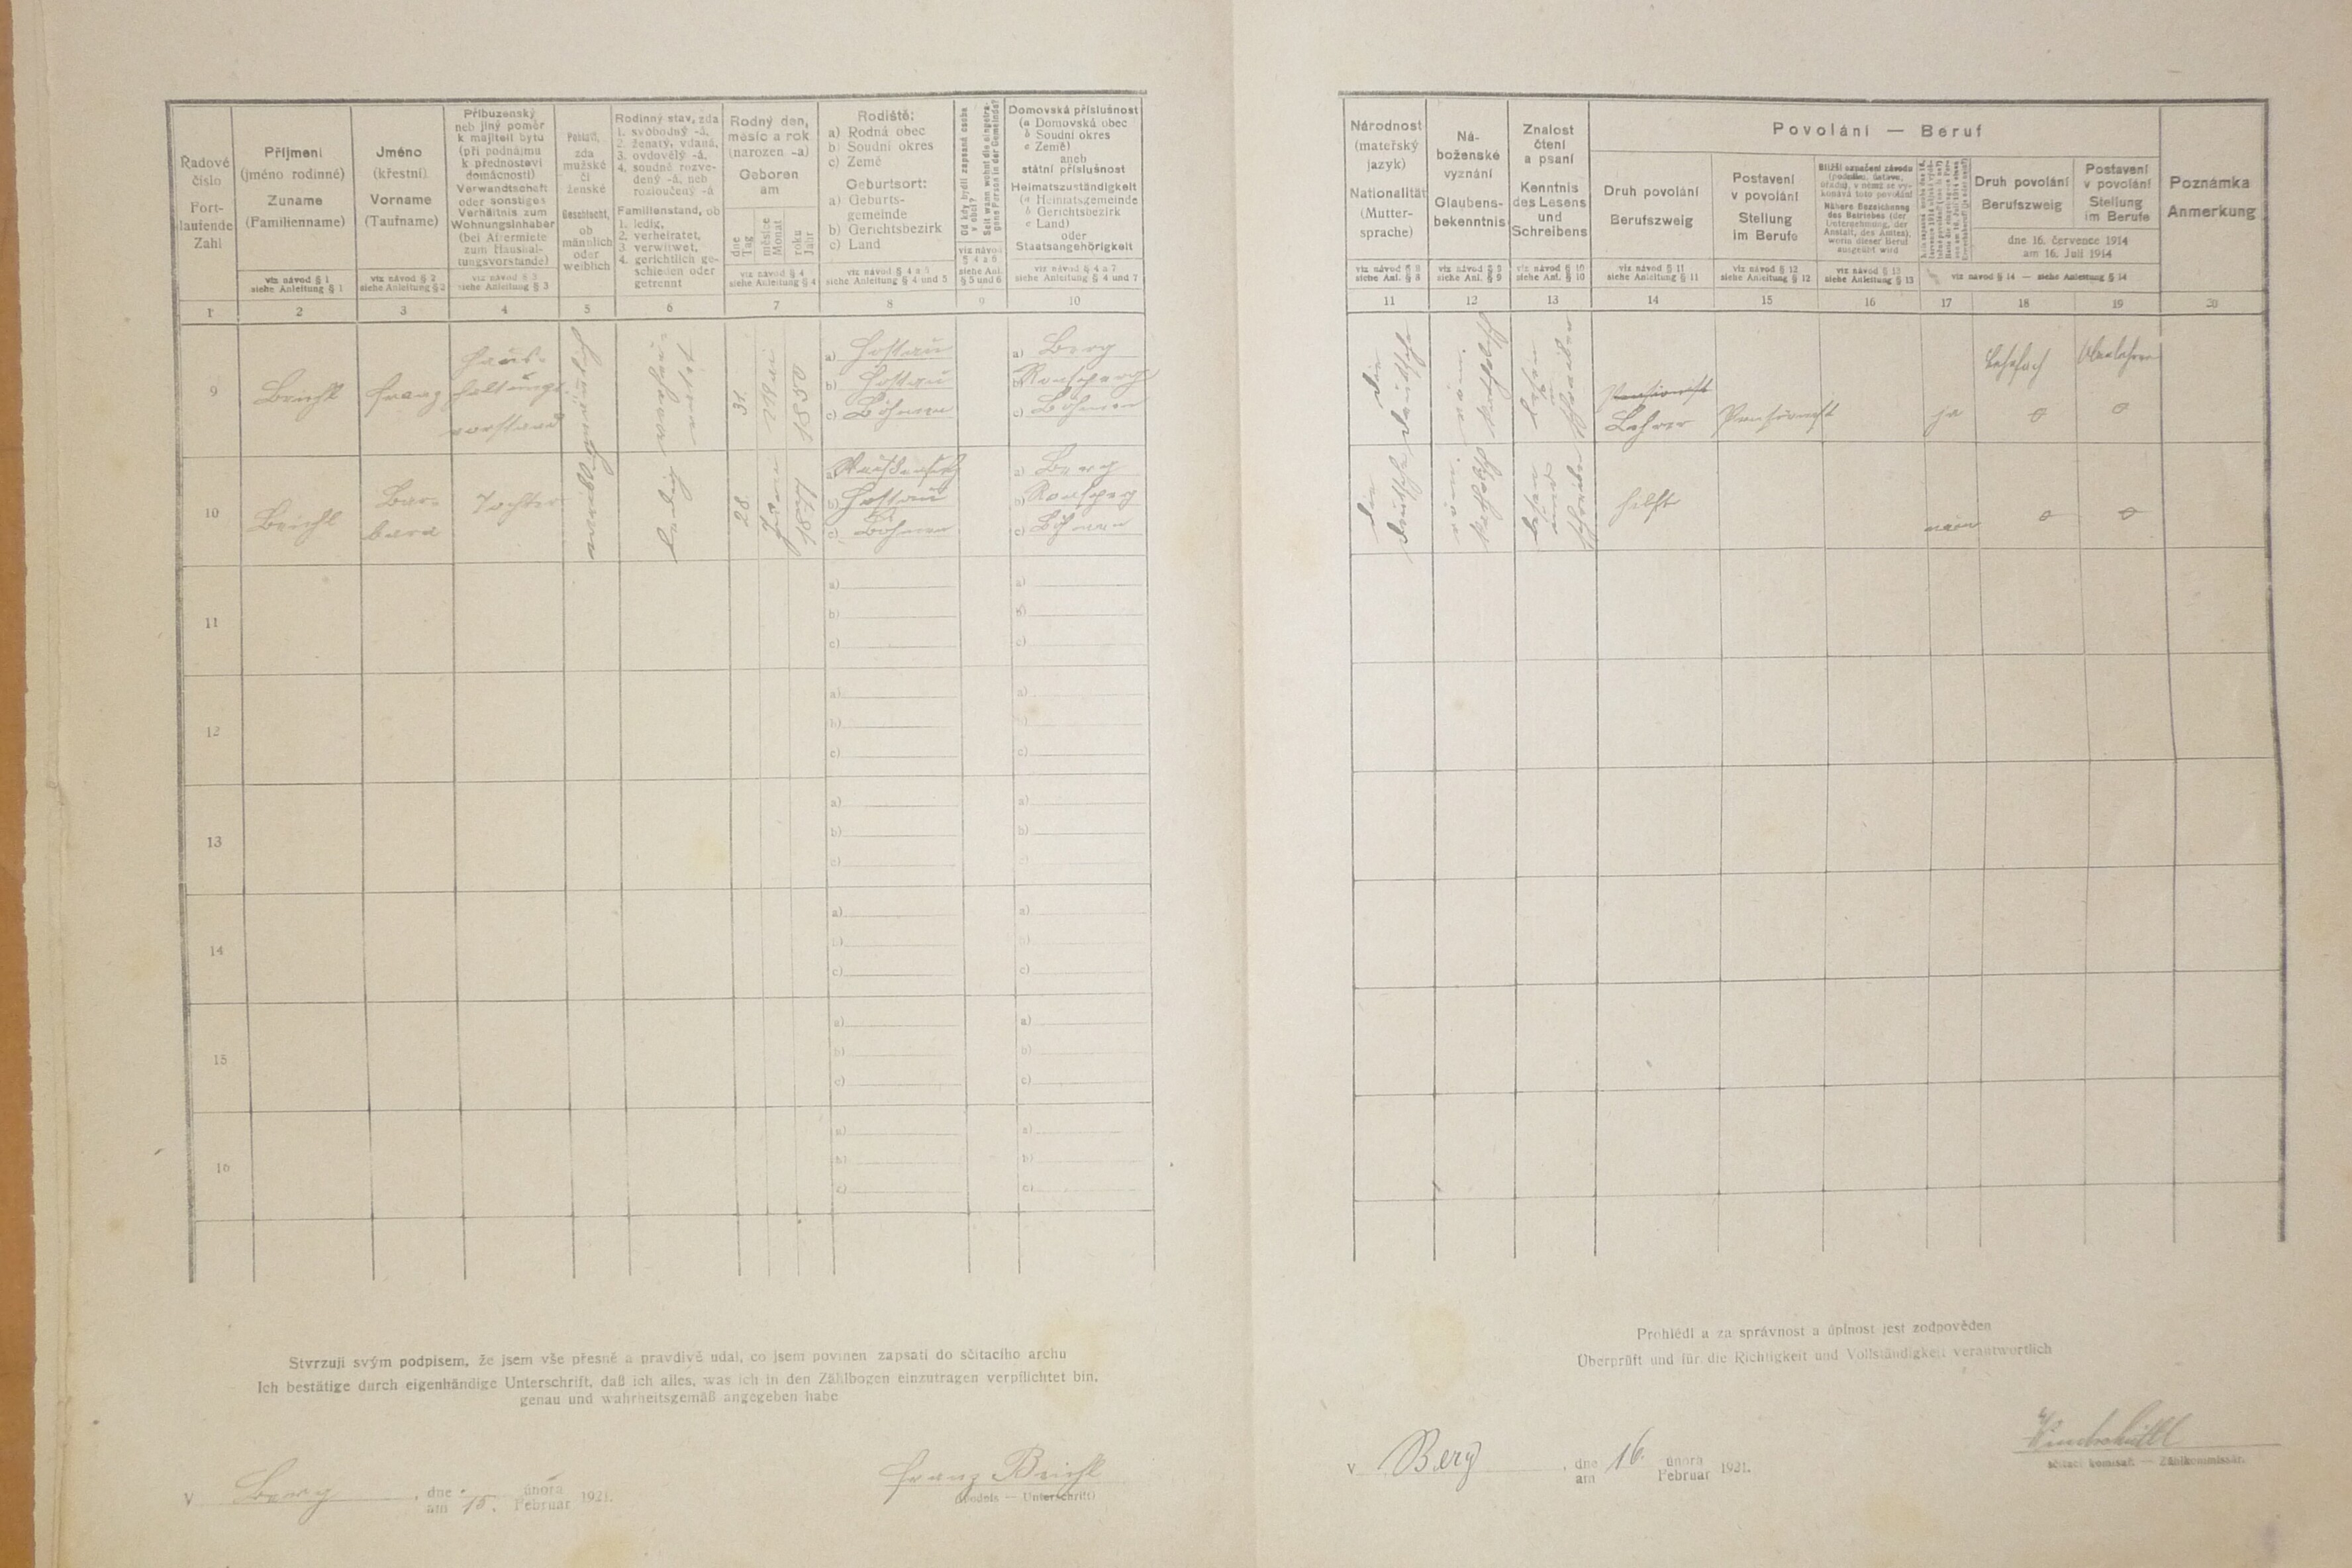 Řadové
číslo
Fort-
laufende
Zahl
Příjmení
(jméno rodinné)
Zuname
(Familienname)
viz návod § 1
siehe Anleitung § 1
Jméno
(křestní)
Vorname
(Taufname)
viz návod § 2
siehe Anleitung § 2
Příbuzenský
neb jiný poměr
k majiteli bytu
(při podnájmu
k přednostovi
domácnosti)
Verwandtschaft
oder sonstiges
Verhältnis zum
Wohnungsinhaber
(bei Aftermiete
zum Haushal-
tungsvorstande)
viz návod § 3
siehe Anleitung § 3
Pohlaví,
zda
mužské
či
ženské
Geschlecht,
ob
männlich
oder
weiblich
Rodinný stav, zda
1. svobodný -á,
2. ženatý, vdaná,
3. ovdovělý -á,
4. soudně rozve-
dený -á, neb
rozloučený -á
Familienstand, ob
1. ledig,
2. verheiratet,
3. verwitwet,
4. gerichtlich ge-
schieden oder
getrennt
Rodný den,
měsíc a rok
(narozen -a)
Geboren
am
dne
Tag
měsíce
Monat
roku
Jahr
viz návod § 4
siehe Anleitung § 4
Rodiště:
a) Rodná obec
b) Soudní okres
c) Země
Geburtsort:
a) Geburts-
gemeinde
b) Gerichtsbezirk
c) Land
viz návod § 4 a 5
siehe Anleitung § 4 und 5
Od kdy bydlí zapsaná osoba
v obci?
Seit wann wohnt die eingetra-
gene Person in der Gemeinde?
viz návod
§ 4 a 6
siehe Anl.
§ 5 und 6
Domovská příslušnost
(a Domovská obec
b Soudní okres
c Země)
aneb
státní příslušnost
Heimatszuständigkeit
(a Heimatsgemeinde
b Gerichtsbezirk
c Land)
oder
Staatsangehörigkeit
viz návod § 4 a 7
siehe Anleitung § 4 und 7
1 2 3 4 5 6 7 8 9 10
9
Beichl
Franz
Haus-
haltungs-
vorstand
männlich
31.
Mai
1850
a) Hostau
b) Hostau
c) Böhmen
a) Berg
b) Ronsperg
c) Böhmen
10
Beichl
Bar-
bara
Tochter
ledig
28.
1877
a)
b) Hostau
c) Böhmen
a) Berg
b) Ronsperg
c) Böhmen
11
a)
b)
c)
a)
b)
c)
12
a)
b)
c)
a)
b)
c)
13
a)
b)
c)
a)
b)
c)
14
a)
b)
c)
a)
b)
c)
15
a)
b)
c)
a)
b)
c)
16
a)
b)
c)
a)
b)
c)
Stvrzuji svým podpisem, že jsem vše přesně a pravdivě udal, co jsem povinen zapsati do sčítacího archu
Ich bestätige durch eigenhändige Unterschrift, daß ich alles, was ich in den Zählbogen einzutragen verpflichtet bin,
genau und wahrheitsgemäß angegeben habe
V Berg, dne
am 15. února
Februar 1921.
Franz Beichl
(Podpis — Unterschrift)
Národnost
(mateřský
jazyk)
Nationalität
(Mutter-
sprache)
viz návod § 8
siehe Anl. § 8
Ná-
boženské
vyznání
Glaubens-
bekenntnis
viz návod § 9
siehe Anl. § 9
Znalost
čtení
a psaní
Kenntnis
des Lesens
und
Schreibens
viz návod § 10
siehe Anl. § 10
Povolání — Beruf
Druh povolání
Berufszweig
viz návod § 11
siehe Anleitung § 11
Postavení
v povolání
Stellung
im Berufe
viz návod § 12
siehe Anleitung § 12
Bližší označení závodu
(podniku, ústavu,
úřadu), v němž se vy-
konává toto povolání
Nähere Bezeichnung
des Betriebes (der
Unternehmung, der
Anstalt, des Amtes),
worin dieser Beruf
ausgeübt wird
viz návod § 13
siehe Anleitung § 13
Druh povolání
Berufszweig
Postavení
v povolání
Stellung
im Berufe
dne 16. července 1914
am 16. Juli 1914
viz návod § 14 — siehe Anleitung § 14
Poznámka
Anmerkung
11 12 13 14 15 16 17 18 19 20
die
deutsche
röm.
katholisch
lesen
u.
schreiben
Pensionist
Lehrer
Pensionist
ja
Lehrfach
Oberlehrer
die
deutsche
röm.
katholisch
lesen
und
schreiben
hilft
nein
Prohlédl a za správnost a úplnost jest zodpověden
Überprüft und für die Richtigkeit und Vollständigkeit verantwortlich
V Berg, dne
am 16. února
Februar 1921.
sčítací komisař. — Zählkommissär.